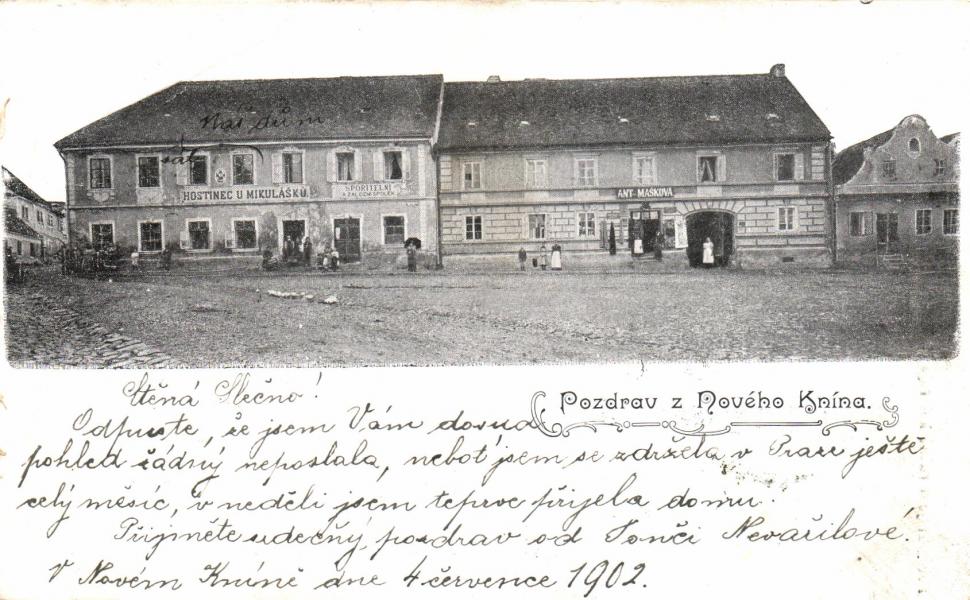 Náš dům
sál
HOSTINEC U MIKULÁŠKŮ.
SPOŘITELNÍ
A ZÁLOŽNÍ SPOLEK
ANT. MAŠKOVA
Pozdrav z Nového Knína.
Ctěná Slečno!
Odpusťte, že jsem Vám dosud
pohled žádný neposlala, neboť jsem se zdržela v Praze ještě
celý měsíc, v neděli jsem teprve přijela domu.
Přijměte srdečný pozdrav od Tonči Nevařilové.
V Novém Kníně dne 4 července 1902.